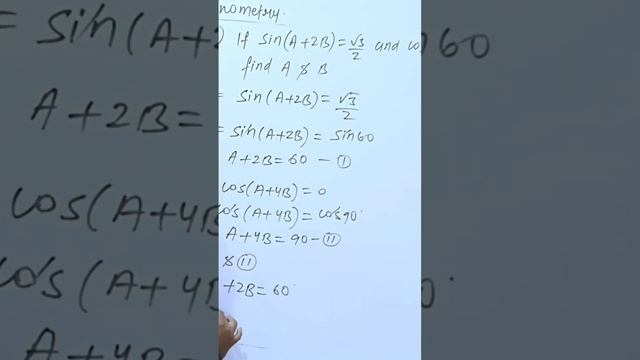 nometry.
) If sin(A+2B)=√3/2 and co
find A & B
= sin(A+2B)=√3/2
= sin(A+2B)=sin60
A+2B=60 - (1)
cos(A+4B)=0
cos(A+4B)=cos90°
A+4B=90-(11)
& (11)
+2B=60°
= sin(A+2
60
A+2B=
cos(A+4B
cos(A+4B
A+4B